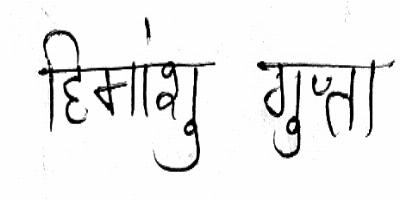 हिमांशु गुप्ता